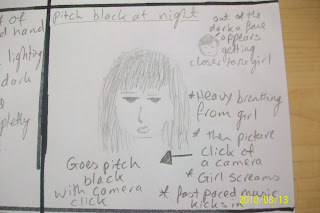 of
hand
lighting
dark
Pitch black at night
out of the
dark a face
appears
getting
closer to the girl
* Heavy breathing
from girl
* then picture
click of
a camera
* Girl screams
* fast paced music
kicks in
Goes pitch
black
with camera
click
2010/08/13